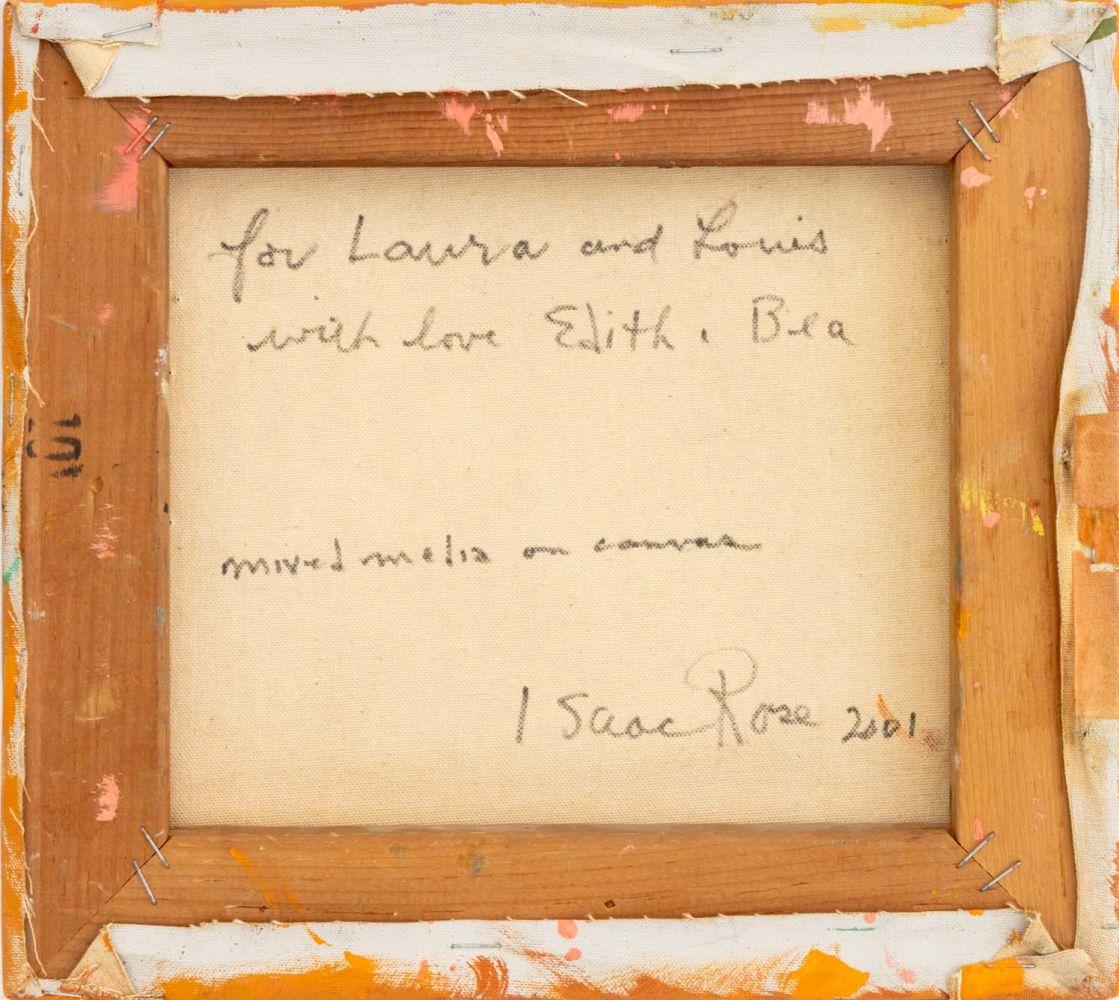 for Laura and Louis
with love Edith. Bea
mixed media on canvas
Isaac Rose 2001